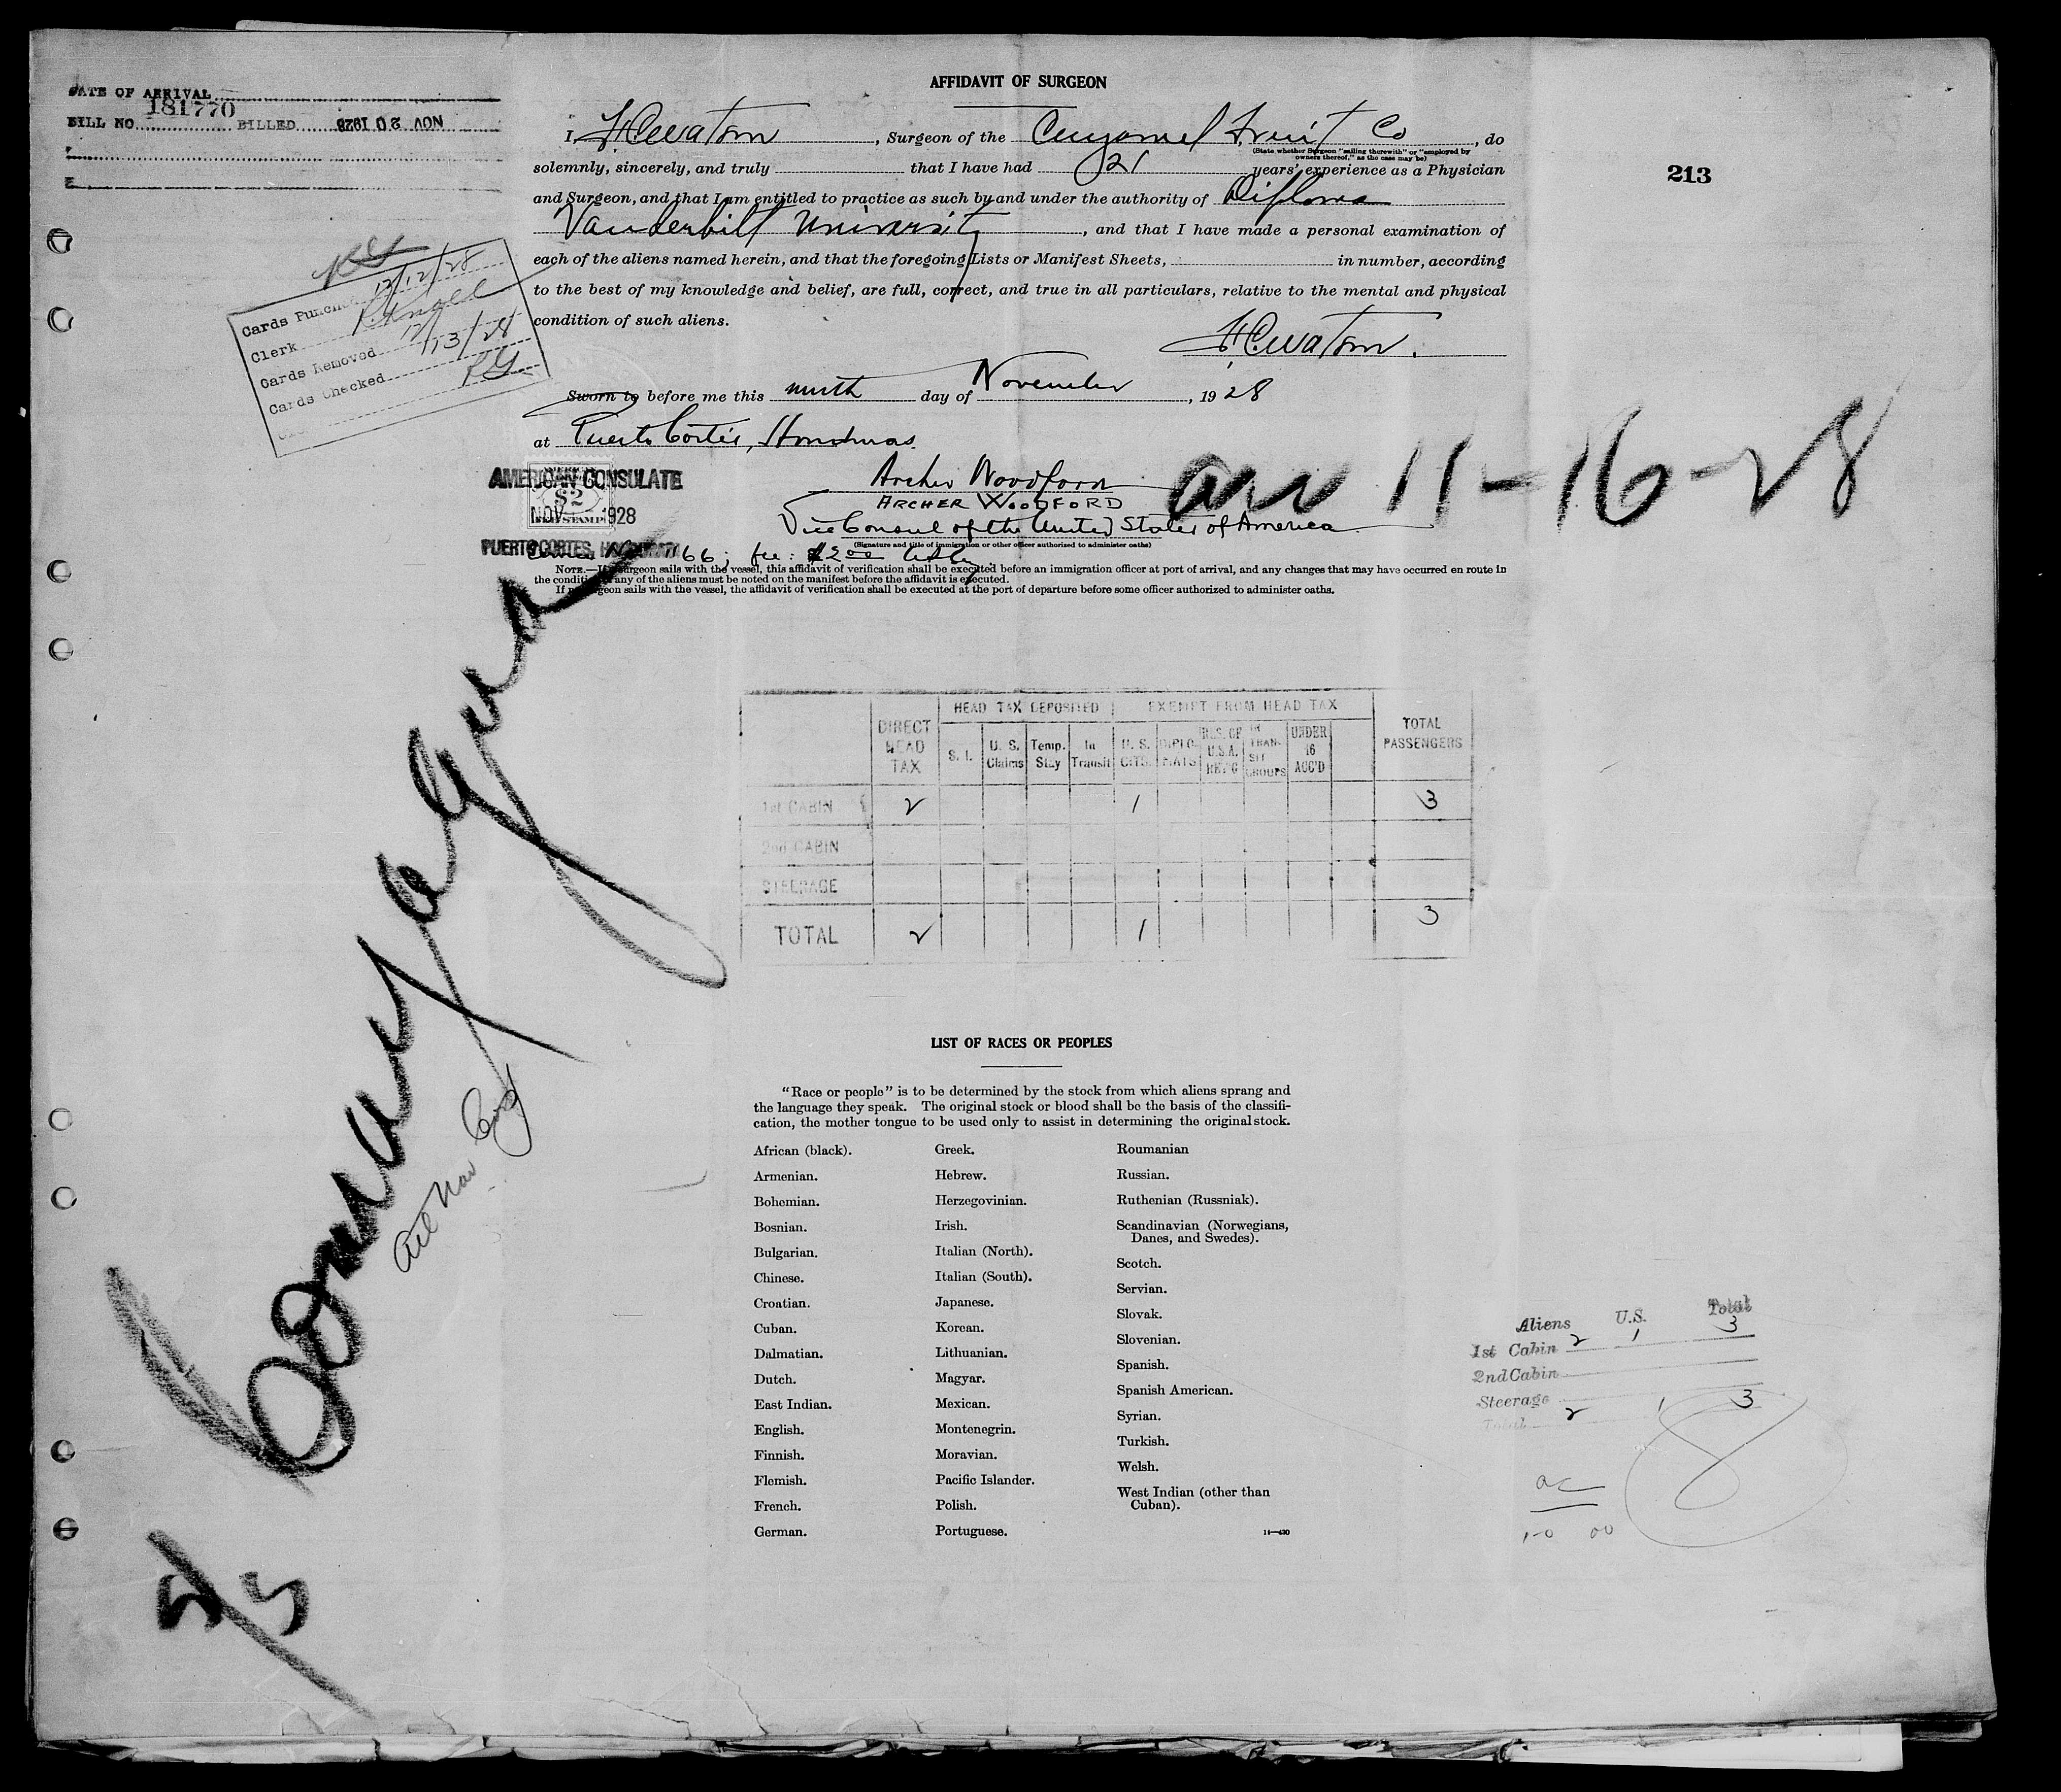 DATE OF ARRIVAL
181770
BILL NO. BILLED NOV 20 1928
213
AFFIDAVIT OF SURGEON
I, H.C. Watson, Surgeon of the Cuyamel Fruit Co, do
(State whether Surgeon "sailing therewith" or "employed by
owners thereof," as the case may be)
solemnly, sincerely, and truly that I have had 21 years' experience as a Physician
and Surgeon, and that I am entitled to practice as such by and under the authority of Diploma
Vanderbilt University, and that I have made a personal examination of
each of the aliens named herein, and that the foregoing Lists or Manifest Sheets, in number, according
to the best of my knowledge and belief, are full, correct, and true in all particulars, relative to the mental and physical
condition of such aliens.
H.C. Watson.
Cards Punch 12/12/28
Clerk
Cards Removed 12/13/28
Cards Checked RG
Sworn to before me this ninth day of November, 1928
at Puerto Cortes, Honduras
AMERICAN CONSULATE
$2
NOV 1928
PUERTO CORTES, HONDURAS
Archer Woodford
ARCHER WOODFORD
Vice Consul of the United States of America
(Signature and title of immigration or other officer authorized to administer oaths)
66; fee: $2.00
arr 11-16-28
NOTE.—If surgeon sails with the vessel, this affidavit of verification shall be executed before an immigration officer at port of arrival, and any changes that may have occurred en route in
the condition any of the aliens must be noted on the manifest before the affidavit is executed.
If no surgeon sails with the vessel, the affidavit of verification shall be executed at the port of departure before some officer authorized to administer oaths.
Comayagua
S/S
DIRECT HEAD TAX HEAD TAX DEPOSITED EXEMPT FROM HEAD TAX TOTAL PASSENGERS
S. I. U. S. Claims Temp. Stay In Transit U. S. CITS. DIPLO- MATS RES. OF U.S.A. RET'G IN TRAN- SIT GROUPS UNDER 16 ACC'D
1st CABIN 2 1 3
2nd CABIN
STEERAGE
TOTAL 2 1 3
LIST OF RACES OR PEOPLES
"Race or people" is to be determined by the stock from which aliens sprang and
the language they speak. The original stock or blood shall be the basis of the classifi-
cation, the mother tongue to be used only to assist in determining the original stock.
African (black).
Armenian.
Bohemian.
Bosnian.
Bulgarian.
Chinese.
Croatian.
Cuban.
Dalmatian.
Dutch.
East Indian.
English.
Finnish.
Flemish.
French.
German.
Greek.
Hebrew.
Herzegovinian.
Irish.
Italian (North).
Italian (South).
Japanese.
Korean.
Lithuanian.
Magyar.
Mexican.
Montenegrin.
Moravian.
Pacific Islander.
Polish.
Portuguese.
Roumanian
Russian.
Ruthenian (Russniak).
Scandinavian (Norwegians,
Danes, and Swedes).
Scotch.
Servian.
Slovak.
Slovenian.
Spanish.
Spanish American.
Syrian.
Turkish.
Welsh.
West Indian (other than
Cuban).
14—430
Aliens U.S. Total
1st Cabin 2 1 3
2nd Cabin
Steerage
Total 2 1 3
8